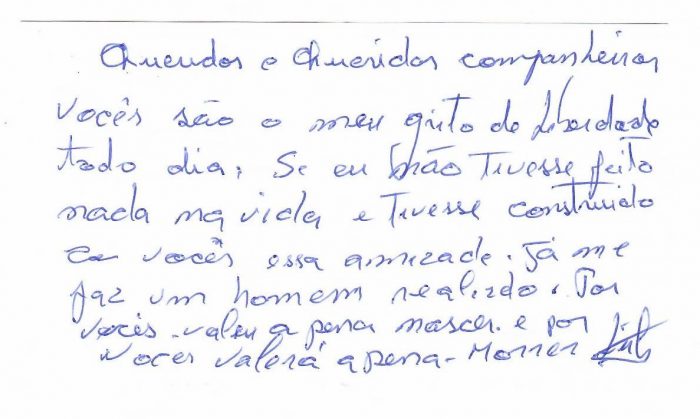 Queridos e Queridas companheiros
vocês são o meu grito de liberdade
todo dia, Se eu não Tivesse feito
nada na vida e Tivesse construido
com vocês essa amizade. Já me
faz um homem realizdo. Por
vocês valeu a pena nascer e por
vocês valerá a pena - Morrer